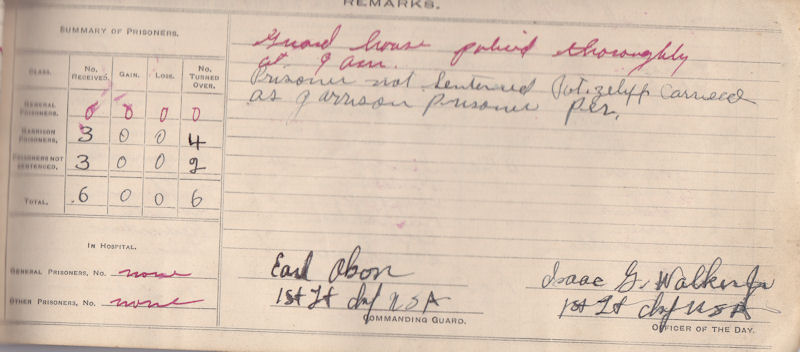 REMARKS.
SUMMARY OF PRISONERS.
CLASS. No. RECEIVED. GAIN. LOSS. No. TURNED OVER.
GENERAL PRISONERS. 0 0 0 0
GARRISON PRISONERS. 3 0 0 4
PRISONERS NOT SENTENCED. 3 0 0 2
TOTAL. 6 0 0 6
IN HOSPITAL.
GENERAL PRISONERS, No. none
OTHER PRISONERS, No. none
Guard house policed thoroughly
at 9 am.
Prisoner not Sentenced Pvt. carried
as garrison prisoner per.
Earl
1st Lt Inf USA
COMMANDING GUARD.
Isaac G. Walker Jr
1st Lt Inf USA
OFFICER OF THE DAY.